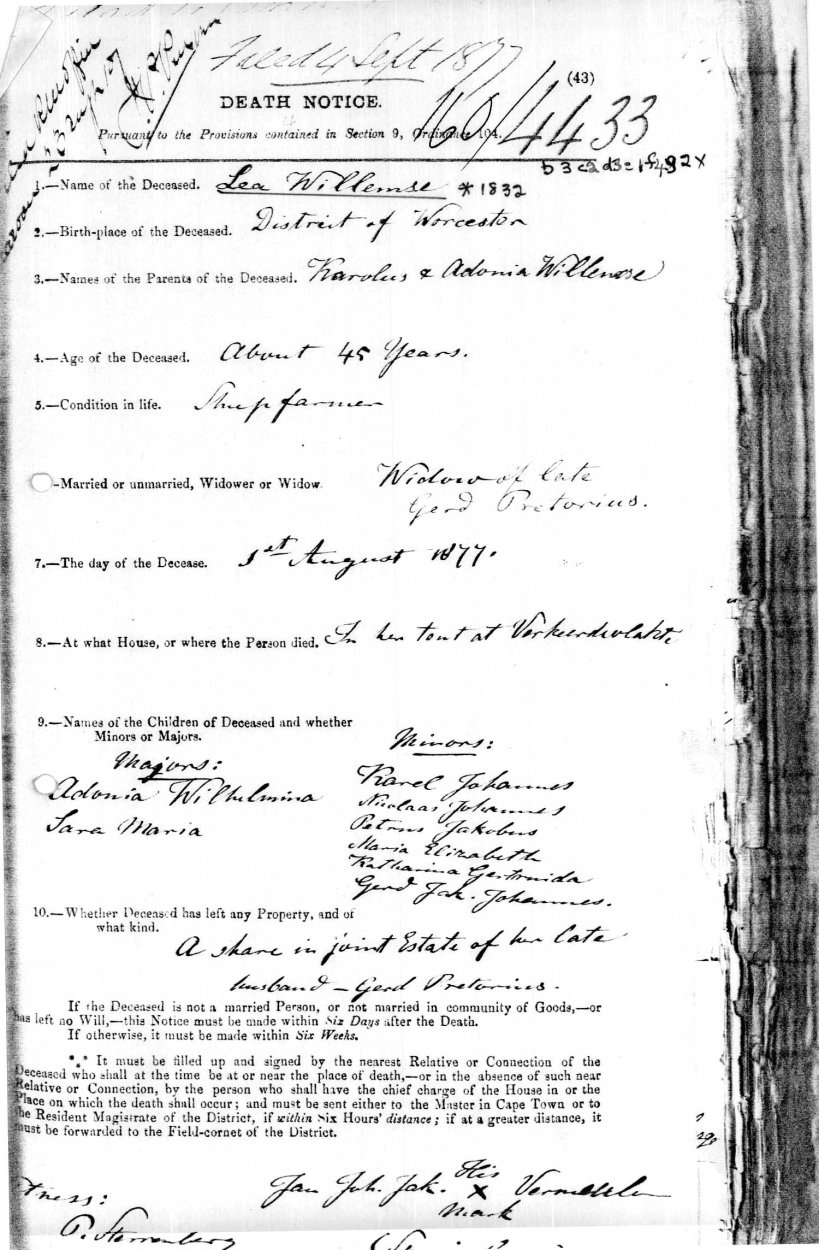 Filed 4 Sept 1877
(43)
DEATH NOTICE.
160/4433
Pursuant to the Provisions contained in Section 9, Ordinance 104.
1.—Name of the Deceased. Lea Willemse * 1832
2.—Birth-place of the Deceased. District of Worcester
3.—Names of the Parents of the Deceased. Karolus & Adonia Willemse
4.—Age of the Deceased. About 45 Years.
5.—Condition in life. Sheepfarmer
-Married or unmarried, Widower or Widow. Widow of late
Gerd Pretorius.
7.—The day of the Decease. 1st August 1877.
8.—At what House, or where the Person died. In her tent at Verkeerdevlakte
9.—Names of the Children of Deceased and whether
Minors or Majors.
Majors:
Adonia Wilhelmina
Sara Maria
Minors:
Karel Johannes
Nicolaas Johannes
Petrus Jakobus
Maria Elizabeth
Katharina Gertruida
Gerd Jak. Johannes.
10.—Whether Deceased has left any Property, and of
what kind.
A share in joint Estate of her late
husband — Gerd Pretorius.
If the Deceased is not a married Person, or not married in community of Goods,—or
has left no Will,—this Notice must be made within Six Days after the Death.
If otherwise, it must be made within Six Weeks.
*** It must be filled up and signed by the nearest Relative or Connection of the
Deceased who shall at the time be at or near the place of death,—or in the absence of such near
Relative or Connection, by the person who shall have the chief charge of the House in or the
Place on which the death shall occur; and must be sent either to the Master in Cape Town or to
the Resident Magistrate of the District, if within Six Hours' distance; if at a greater distance, it
must be forwarded to the Field-cornet of the District.
Jan Joh. Jak. His X Mark Vermeulen
tness:
P. Sterrenberg